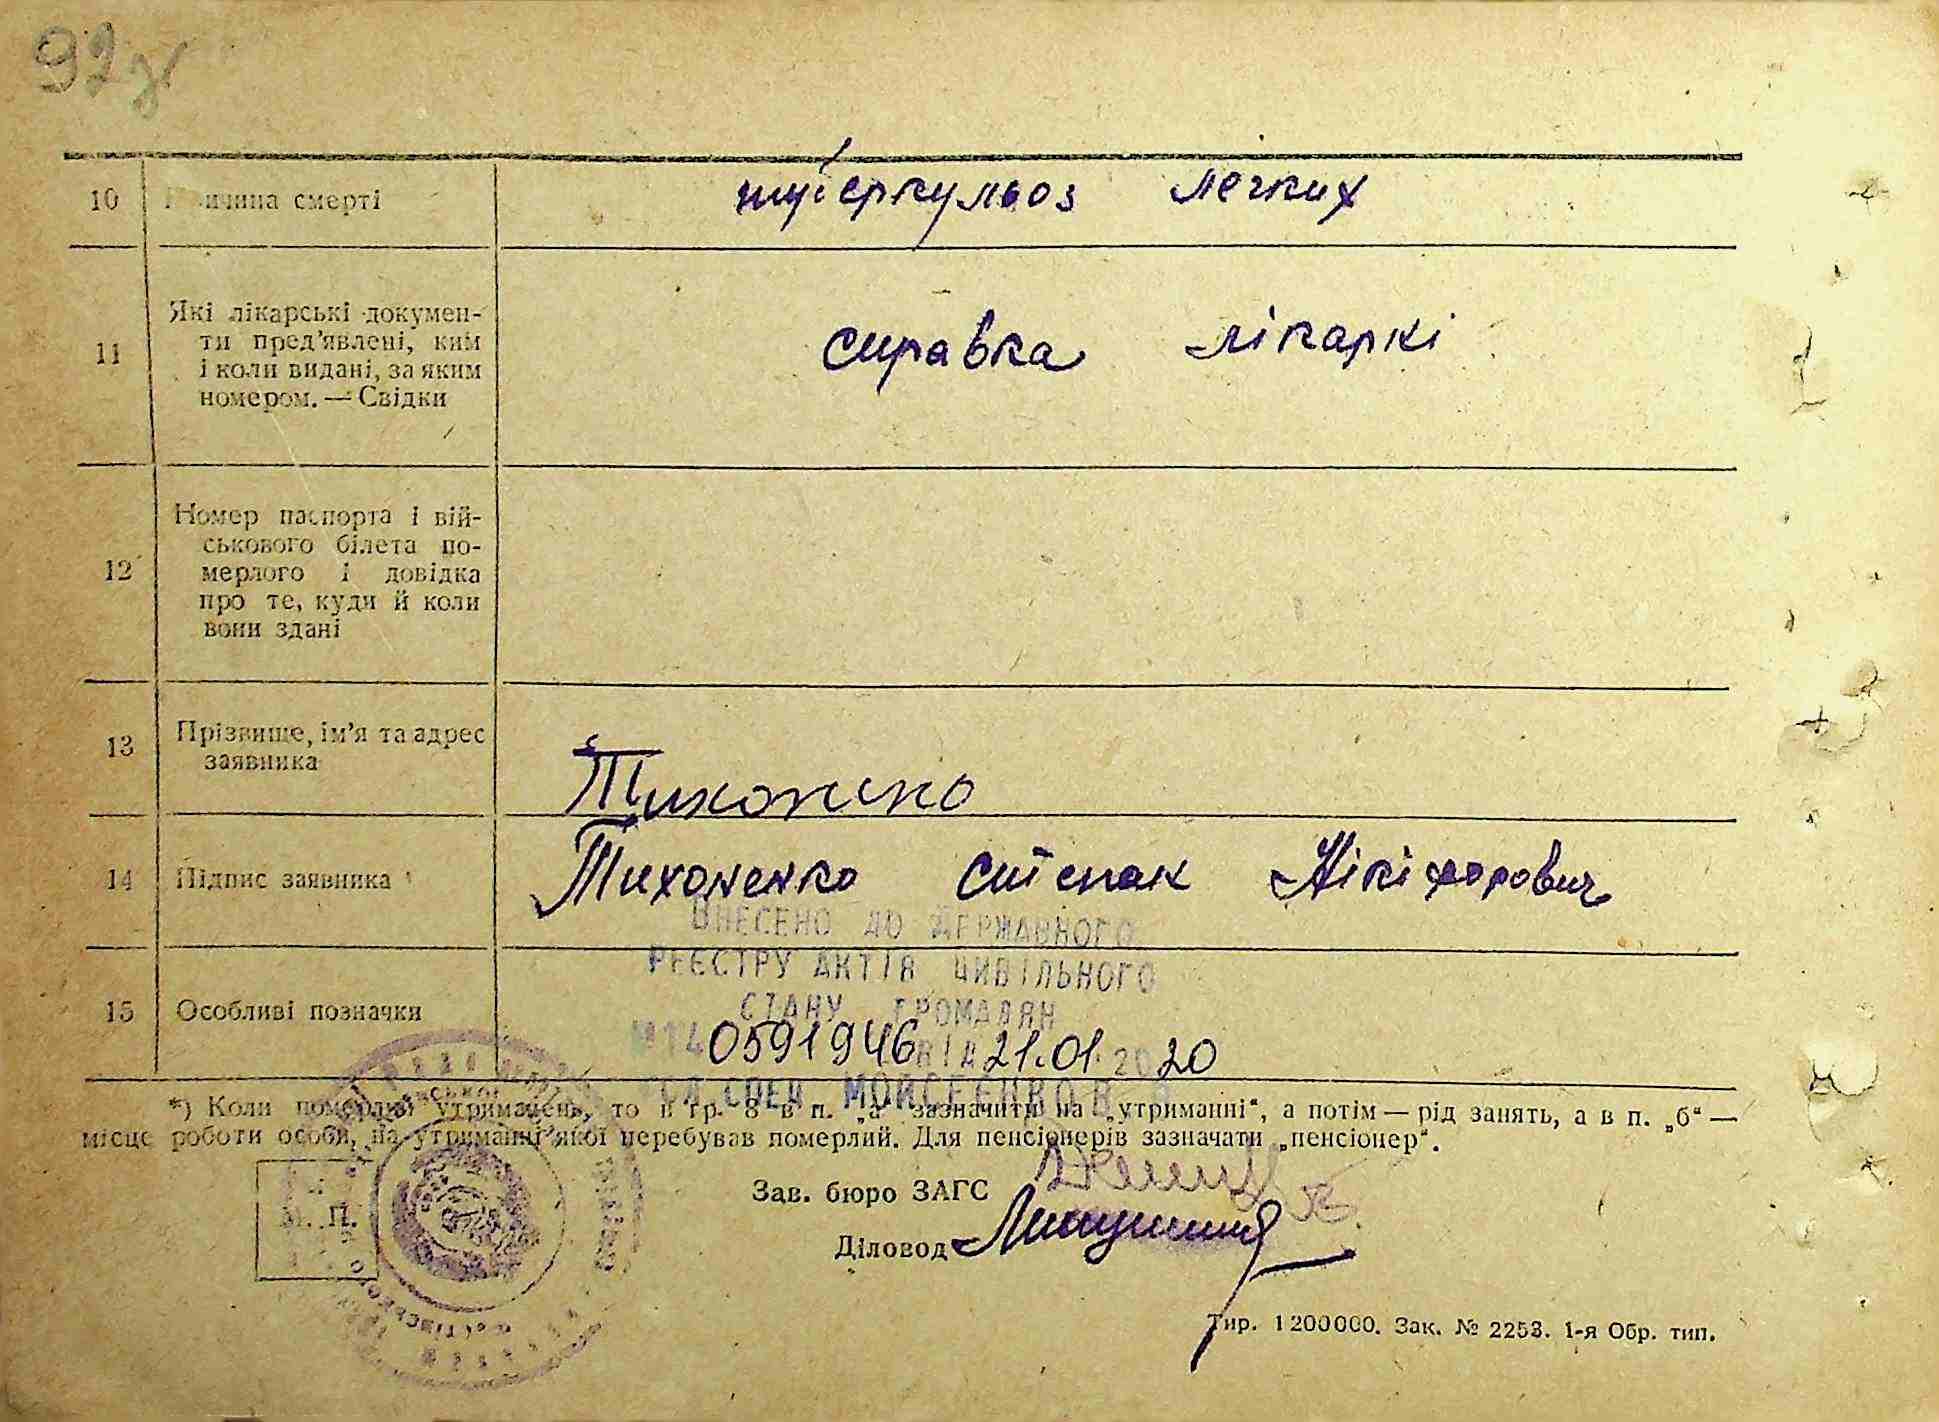 92
10 Причина смерті
туберкульоз легких
11 Які лікарські докумен-
ти пред'явлені, ким
і коли видані, за яким
номером. — Свідки
справка лікаркі
12 Номер паспорта і вій-
ськового білета по-
мерлого і довідка
про те, куди й коли
вони здані
13 Прізвище, ім'я та адрес
заявника
Тихоненко
14 Підпис заявника
Тихоненко Степан Нікіфорович
ВНЕСЕНО ДО ДЕРЖАВНОГО
РЕЄСТРУ АКТІВ ЦИВІЛЬНОГО
СТАНУ ГРОМАДЯН
15 Особливі позначки
№140591946 ВІД 21.01.2020
ГЛ СПЕЦ МОИСЕЄНКО В
*) Коли померлий утриманець, то в гр. 8 в п. „а“ зазначити на „утриманні“, а потім — рід занять, а в п. „б“ —
місце роботи особи, на утриманні якої перебував померлий. Для пенсіонерів зазначати „пенсіонер“.
М. П.
Зав. бюро ЗАГС
Діловод
Тир. 1200000. Зак. № 2253. 1-я Обр. тип.